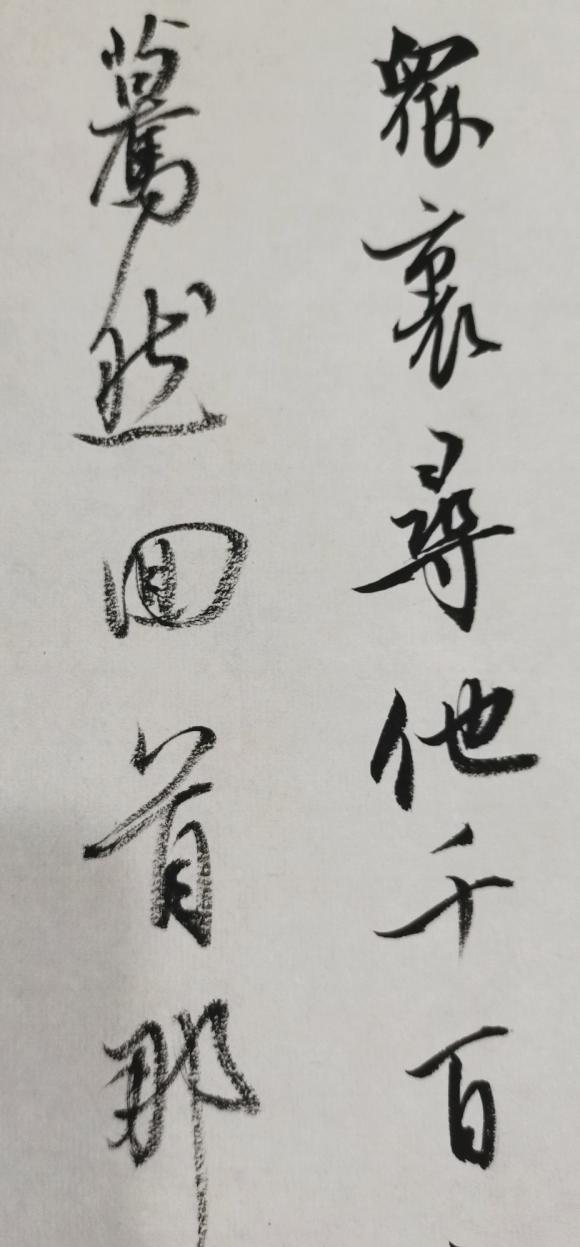 眾裏尋他千百
驀然回首那